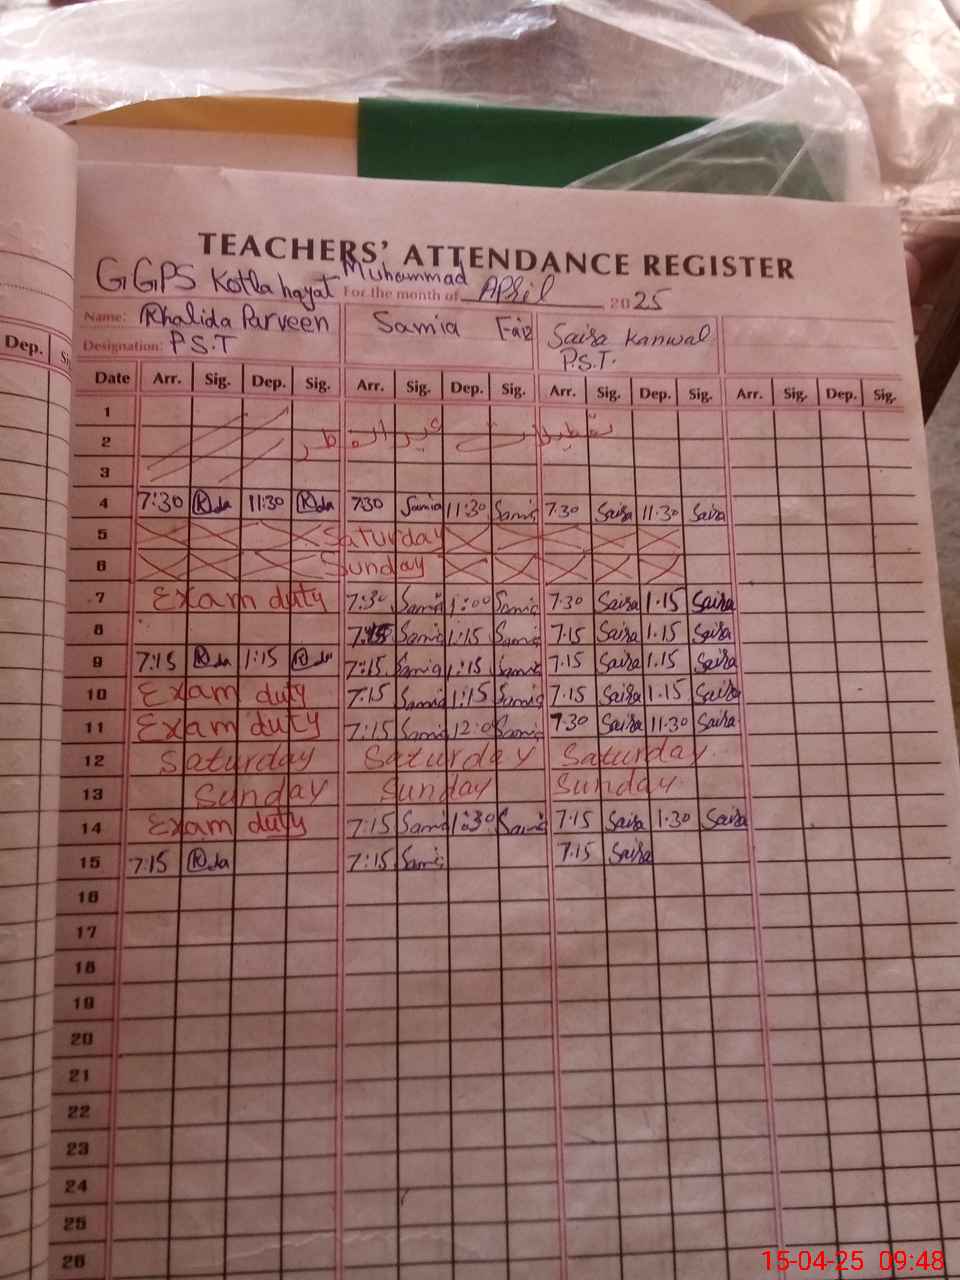 TEACHERS' ATTENDANCE REGISTER
GGPS Kotla hayat Muhammad For the month of April 2025
Name: Khalida Parveen Samia Faiz Saira Kanwal
Designation: P.S.T P.S.T.
Dep.
Date Arr. Sig. Dep. Sig. Arr. Sig. Dep. Sig. Arr. Sig. Dep. Sig. Arr. Sig. Dep. Sig.
1
2 عید الفطر تعطیلات
3
4 7:30 11:30 7:30 Samia 11:30 Samia 7:30 Saira 11:30 Saira
5 Saturday
6 Sunday
7 Exam duty 7:30 Samia 1:00 Samia 7:30 Saira 1.15 Saira
8 7:15 Samia 1:15 Samia 7.15 Saira 1.15 Saira
9 7:15 1:15 7:15 Samia 1:15 Samia 7.15 Saira 1.15 Saira
10 Exam duty 7:15 Samia 1:15 Samia 7.15 Saira 1.15 Saira
11 Exam duty 7:15 Samia 12:0 Samia 7.30 Saira 11.30 Saira
12 Saturday Saturday Saturday
13 Sunday Sunday Sunday
14 Exam duty 7:15 Samia 1:30 Samia 7.15 Saira 1.30 Saira
15 7:15 7:15 Samia 7.15 Saira
16
17
18
19
20
21
22
23
24
25
26
15-04-25 09:48